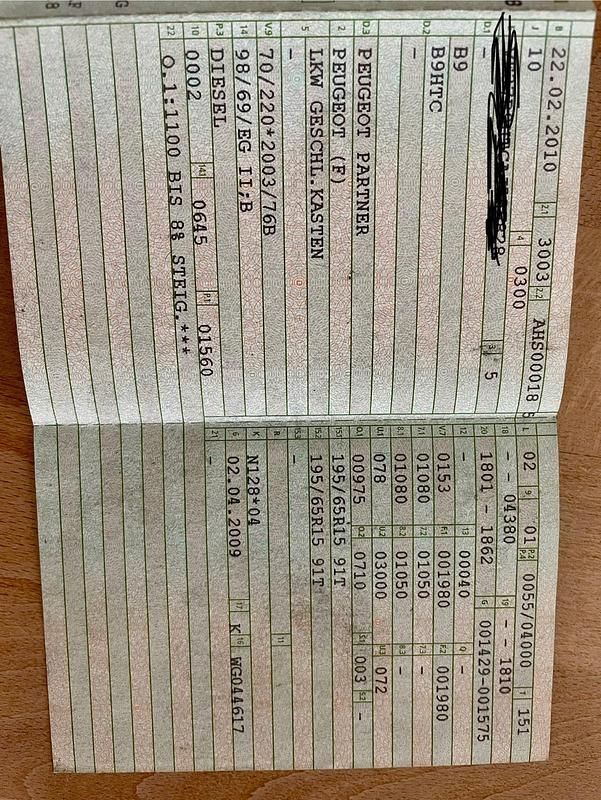 B 22.02.2010 2.1 3003 2.2 AHS00018
J 10 4 0300
3 5
D.1 -
B9
D.2 B9HTC
-
D.3 PEUGEOT PARTNER
2 PEUGEOT (F)
5 LKW GESCHL.KASTEN
-
V.9 70/220*2003/76B
14 98/69/EG II;B
P.3 DIESEL
10 0002 14.1 0645 P.1 01560
22 O.1:1100 BIS 8% STEIG.***
L 02 9 01 P.2 P.4 0055/04000 T 151
18 - - 04380 19 - - 1810
20 1801 - 1862 G 001429-001575
12 - 13 00040 Q -
V.7 0153 F.1 001980 F.2 001980
7.1 01080 7.2 01050 7.3 -
8.1 01080 8.2 01050 8.3 -
U.1 078 U.2 03000 U.3 072
O.1 00975 O.2 0710 S.1 003 S.2 -
15.1 195/65R15 91T
15.2 195/65R15 91T
15.3 -
R 11
K N128*04
6 02.04.2009 17 K 16 WG044617
21 -